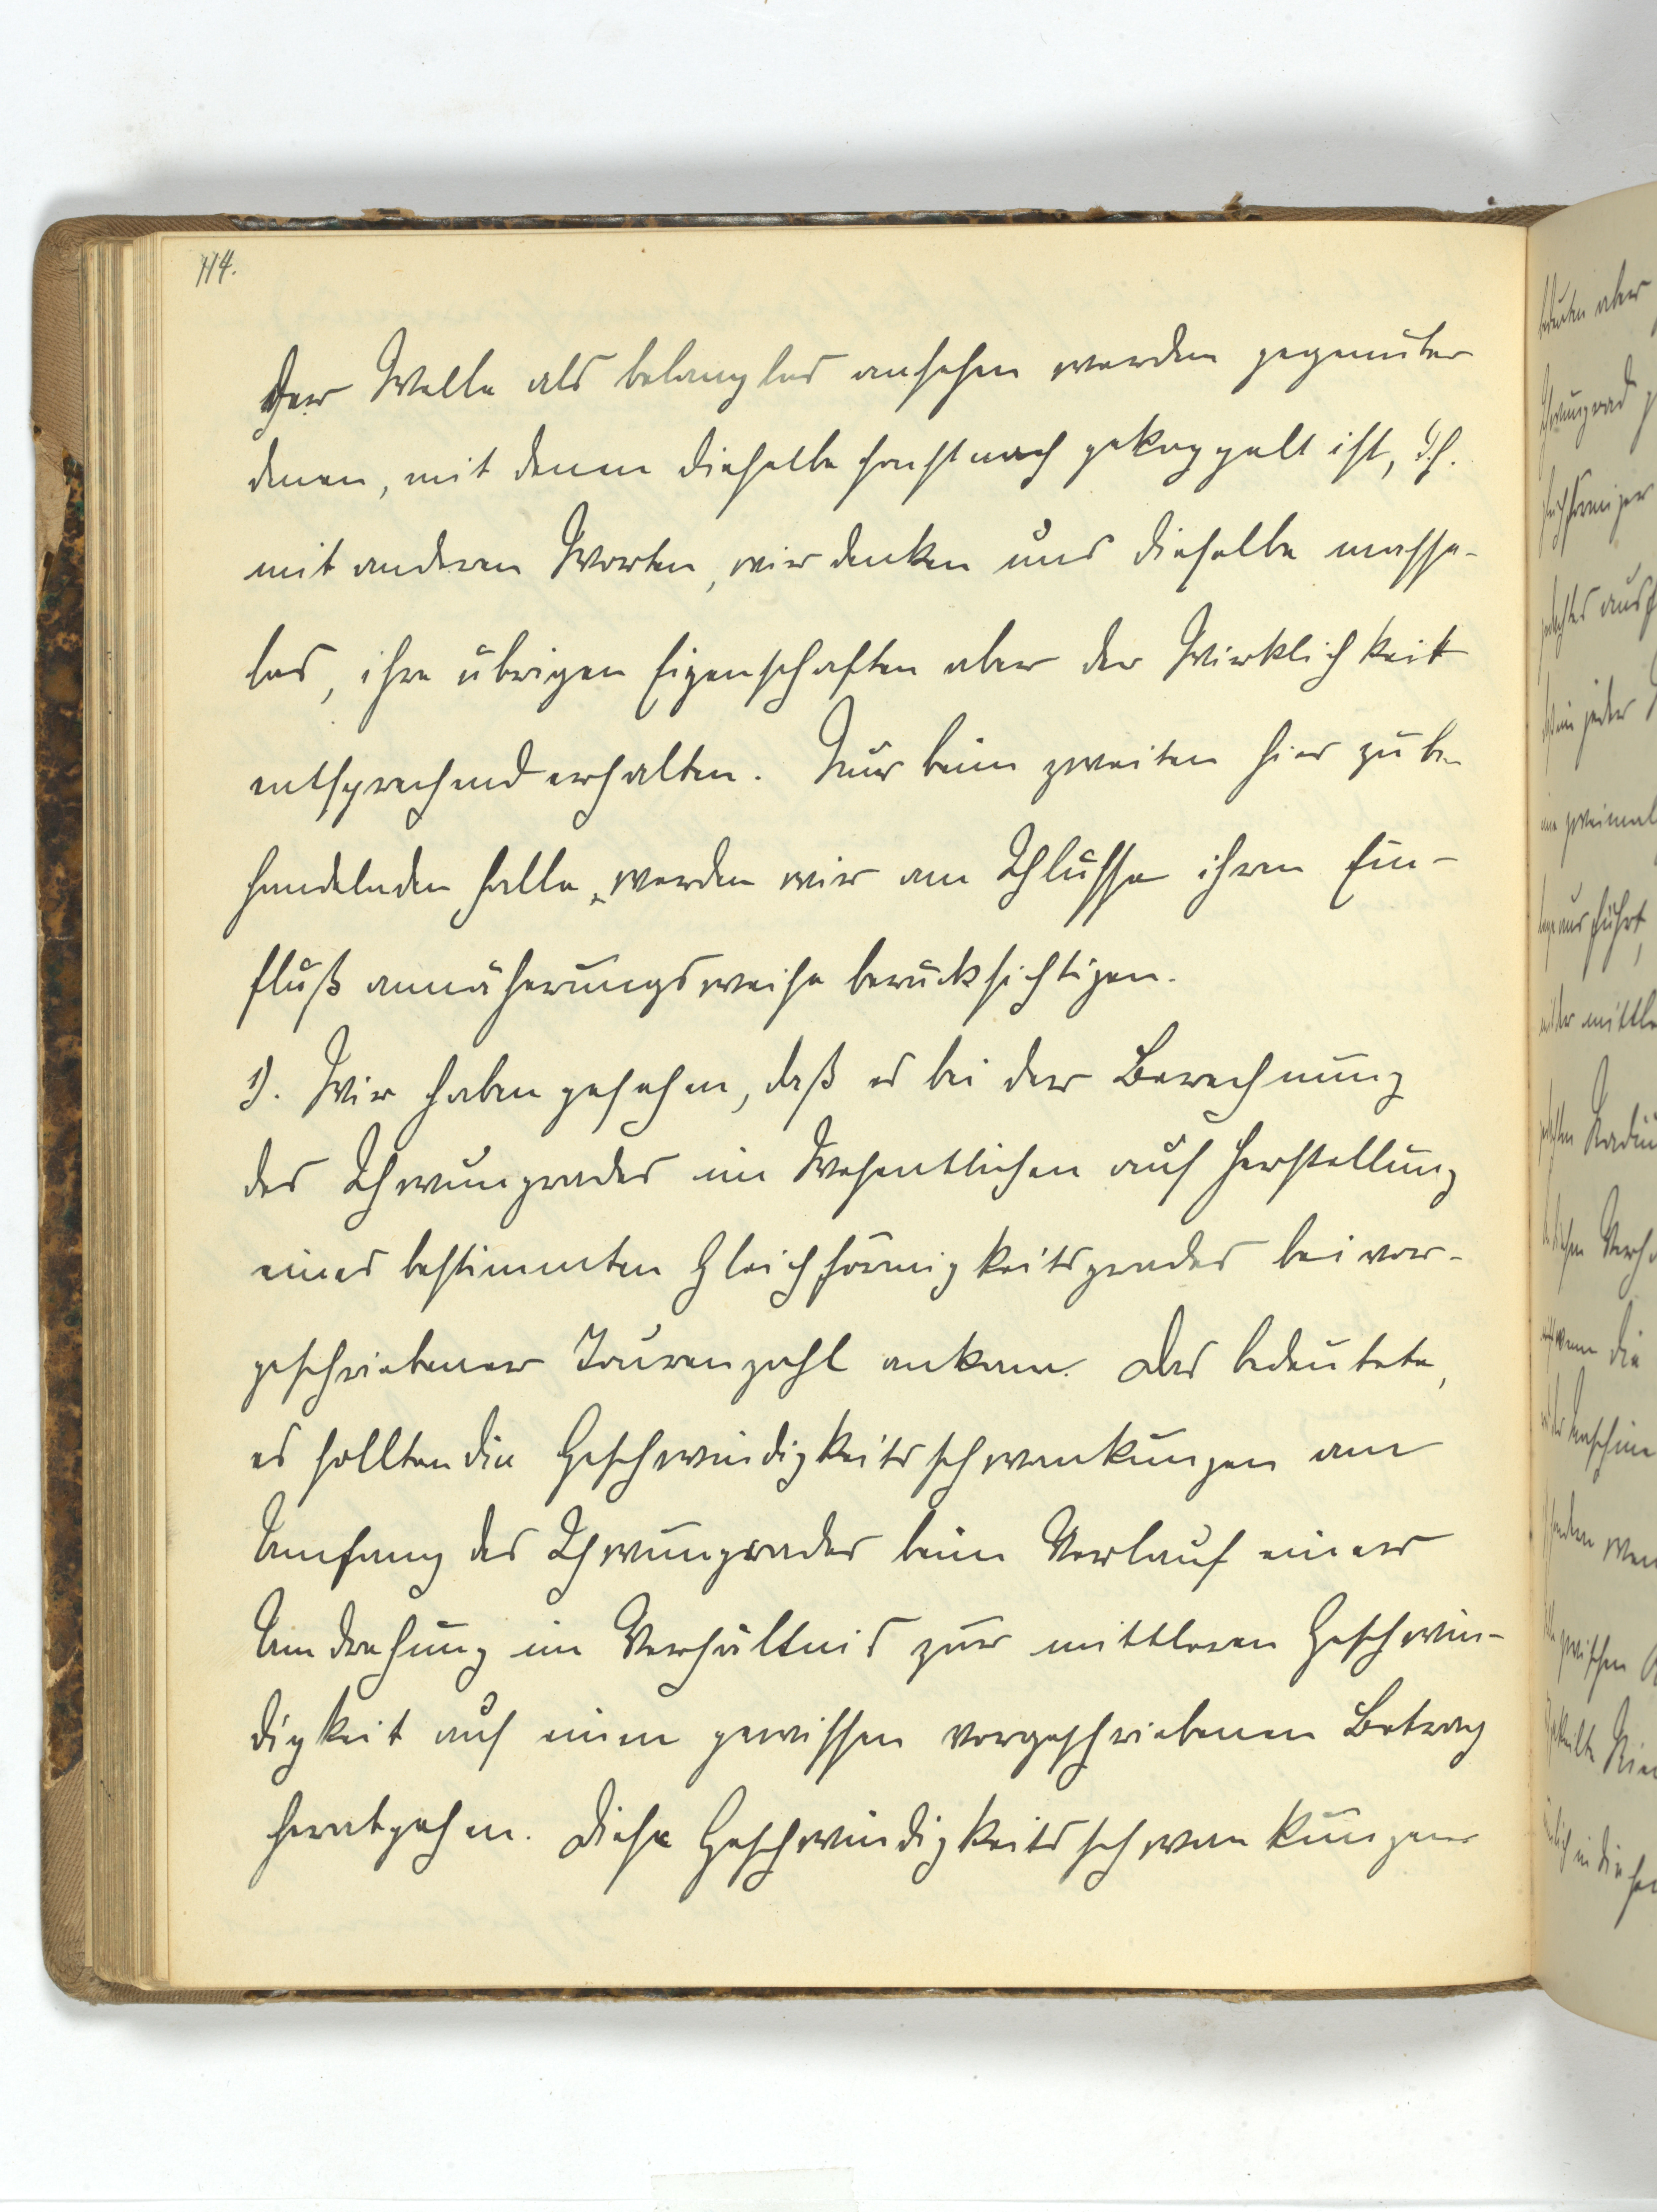 114.
der Welle als belanglos ansehen werden gegenüber
denen, mit denen dieselbe sonst noch gekoppelt ist, d.h.
mit anderen Worten, wir denken uns dieselbe masse-
los, ihre übrigen Eigenschaften aber der Wirklichkeit
entsprechend erhalten. Nur beim zweiten hier zu be-
handelnden Falle, werden wir am Schlusse ihren Ein-
fluß annäherungsweise berücksichtigen.
1). Wir haben gesehen, daß es bei der Berechnung
des Schwungrades im Wesentlichen auf Herstellung
eines bestimmten Gleichförmigkeitsgrades bei vor-
geschriebener Tourenzahl ankam. Das bedeutete,
es sollten die Geschwindigkeitsschwankungen am
Umfang des Schwungrades beim Verlauf einer
Umdrehung im Verhältnis zur mittleren Geschwin-
digkeit auf einen gewissen vorgeschriebenen Betrag
herabgehen. Diese Geschwindigkeitsschwankungen
aber
jeder
zweimal
führt,
mittle
die
zwischen